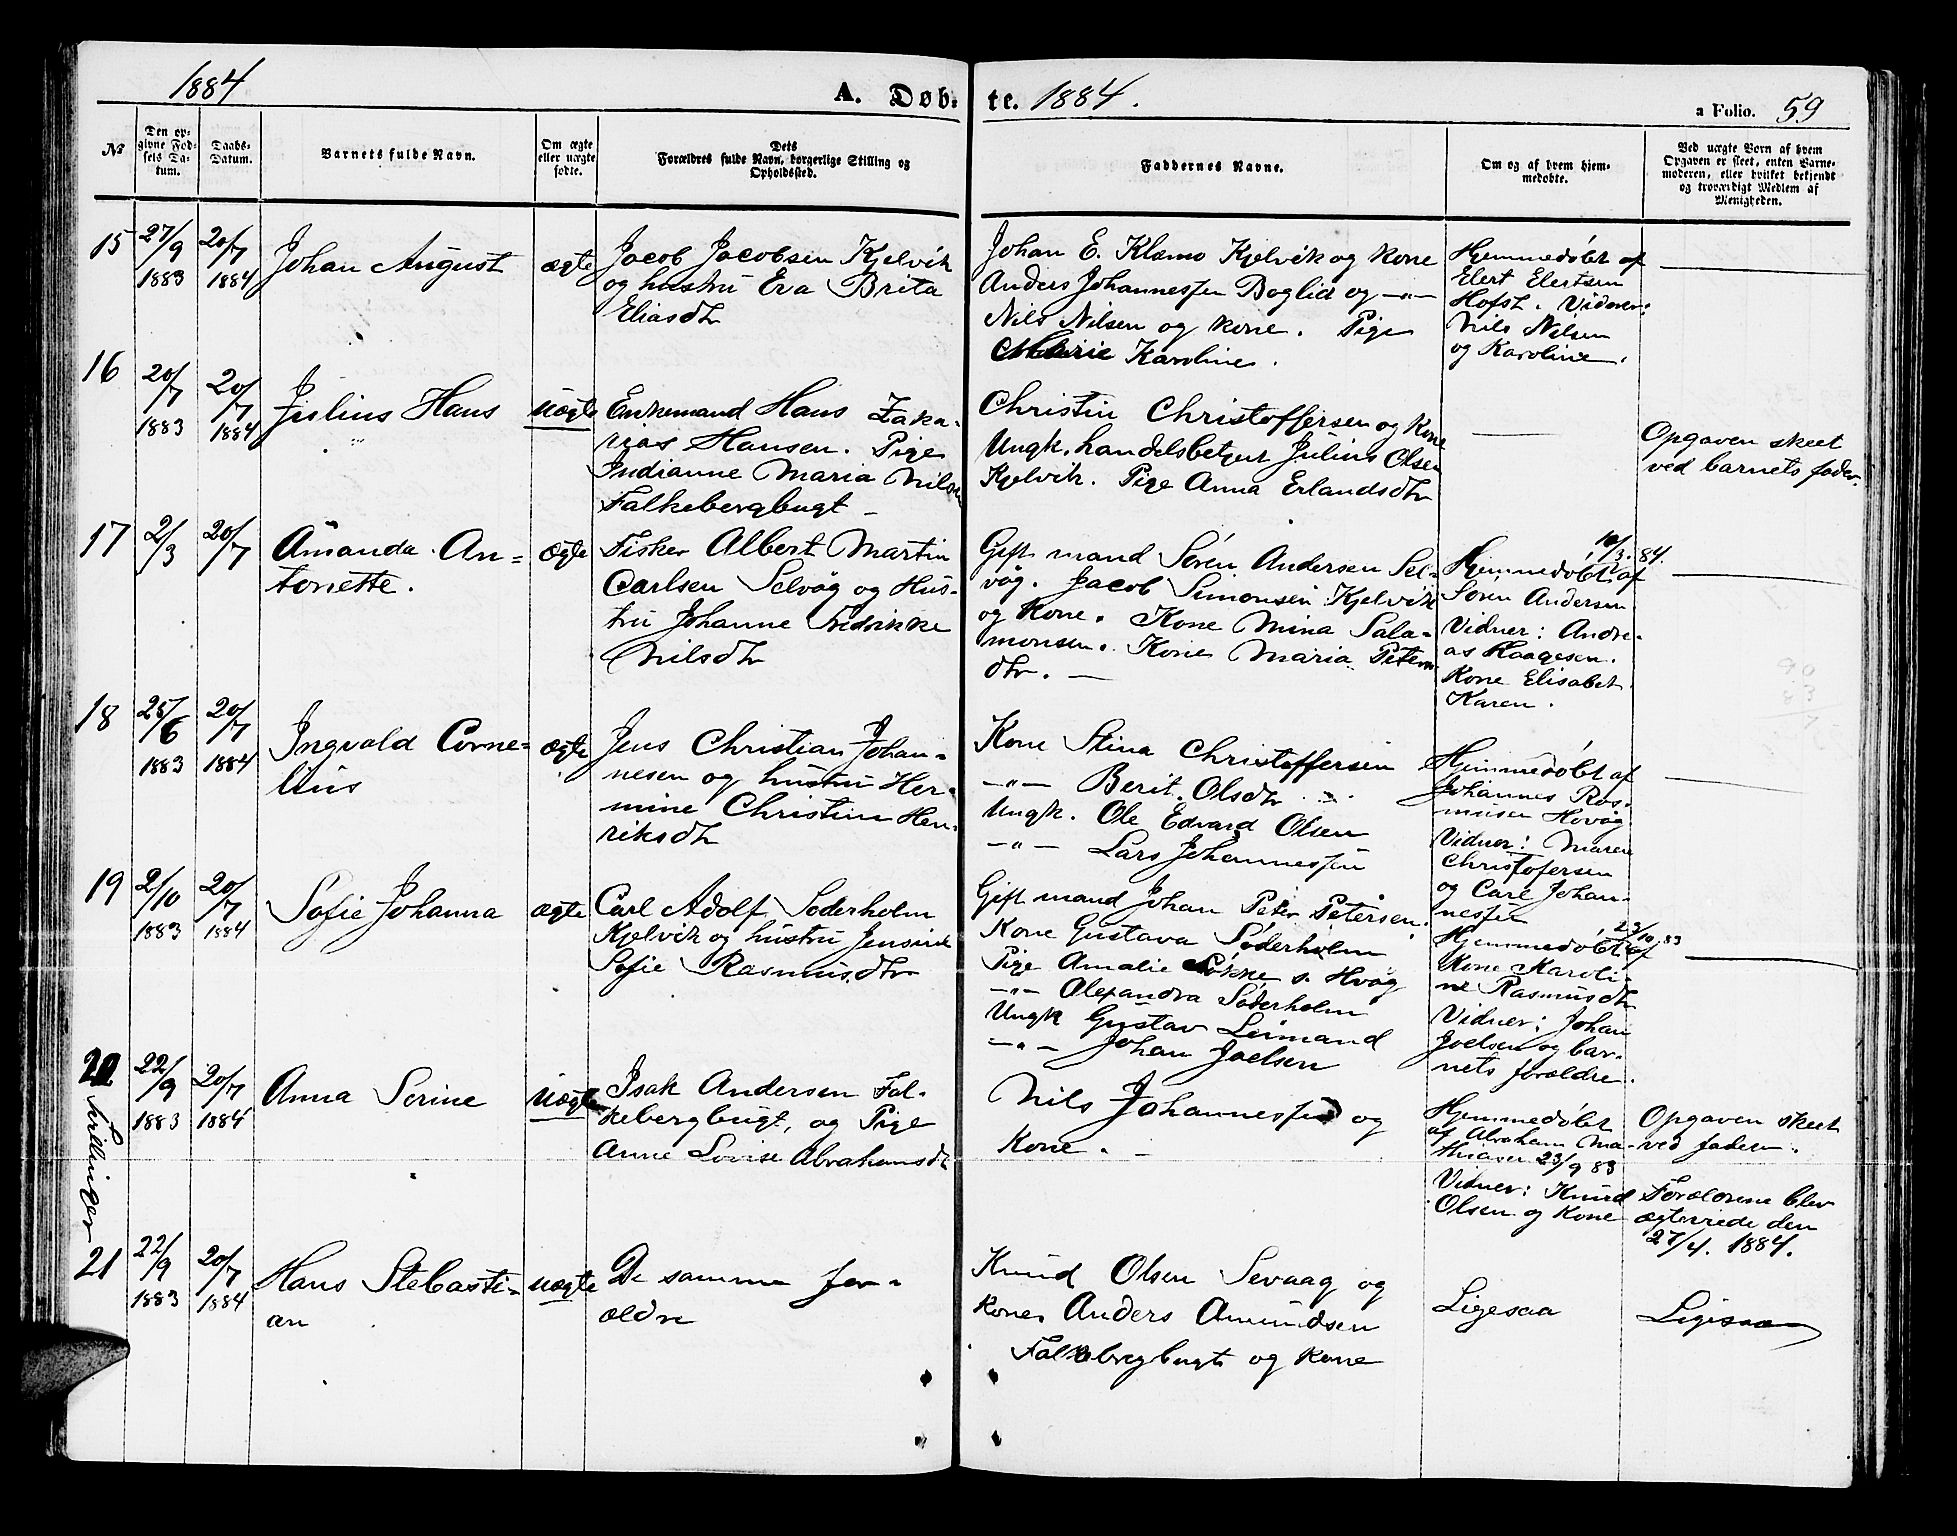 1884
A. Døb-
te. 1884.
a Folio. 59
№
Den op-
givne Fød-
sels Da-
tum.
Daabs-
Datum.
Barnets fulde Navn.
Om ægte
eller uægte
fødte.
Dets
Forældres fulde Navn, borgerlige Stilling og
Opholdssted.
Faddernes Navne.
Om og af hvem hjem-
medøbte.
Ved uægte Børn af hvem
Opgaven er skeet, enten Barne-
moderen, eller hvilket bekjendt
og troværdigt Medlem af
Menigheden.
15
27/9
1883
20/7
1884
Johan August
ægte
Jacob Jacobsen Kjelvik
og hustru Eva Brita
Eliasdtr
Johan E. Klæmo Kjelvik og kone
Anders Johannessen Boglid og —"—
Nils Nilsen og kone. Pige
Marie Karoline.
Hjemmedøbt af
Elert Elertsen
Hofst. Vidner:
Nils Nilsen
og Karoline.
16
20/7
1883
20/7
1884
Julius Hans
uægte
Enkemand Hans Zaka-
rias Hansen. Pige
Indianne Maria Nilsen
Falkebergbugt
Christin Christoffersen og kone
Ungk. handelsbetjent Julius Olsen
Kjelvik. Pige Anna Erlandsdtr
Opgaven skeet
ved barnets fader.
17
2/3
20/7
Amanda An-
tonette.
ægte
Fisker Albert Martin
Carlsen Selvåg og Hus-
tru Johanne Fredrikke
Nilsdtr
Gift mand Søren Andersen Sel-
våg. Jacob Simonsen Kjelvik
og kone. Kone Mina Sala-
monsen. Kone Maria Peters
dtr.
10/3. 84.
Hjemmedøbt af
Søren Andersen
Vidner: Andre-
as Haagesen.
Kone Elisabet
Karen.
18
25/6
1883
20/7
1884
Ingvald Corne-
lius
ægte
Jens Christian Johan-
nesen og hustru Her-
mine Christine Hen-
riksdtr
Kone Stina Christoffersen
—"— Berit Olsdtr
Ungk. Ole Edvard Olsen
—"— Lars Johannessen
Hjemmedøbt af
Johannes Ras-
musen Hovåg
Vidner: Maren
Christofersen
og Carl Johan-
nessen
19
2/10
1883
20/7
1884
Sofie Johanna
ægte
Carl Adolf Søderholm
Kjelvik og hustru Jensine
Sofie Rasmusdtr
Gift mand Johan Peter Petersen.
Kone Gustava Søderholm
Pige Amalie Søkke s. Hvåg
—"— Alexandra Søderholm
Ungk Gustav Leimand
—"— Johan Joelsen
23/10. 83
Hjemmedøbt af
Kone Karoli-
ne Rasmusdtr
Vidner: Johan
Joelsen og bar-
nets forældre.
20
22/9
1883
20/7
1884
Anna Serine
uægte
Isak Andersen Fal-
kebergbugt, og Pige
Anne Lovise Abrahamsdtr
Nils Johannessen og
Kone.
Hjemmedøbt
af Abraham Ma-
thiasen 23/9 83
Vidner: Knud
Olsen og Kone
Opgaven skeet
ved faderen.
Forældrene blev
ægteviede den
27/4. 1884.
Tvillinger
21
22/9
1883
20/7
1884
Hans Stebasti-
an
uægte
De samme for-
ældre
Knud Olsen Sevaag og
kone. Anders Amundsen
Falkebergbugt og kone
Ligesaa
Ligesaa